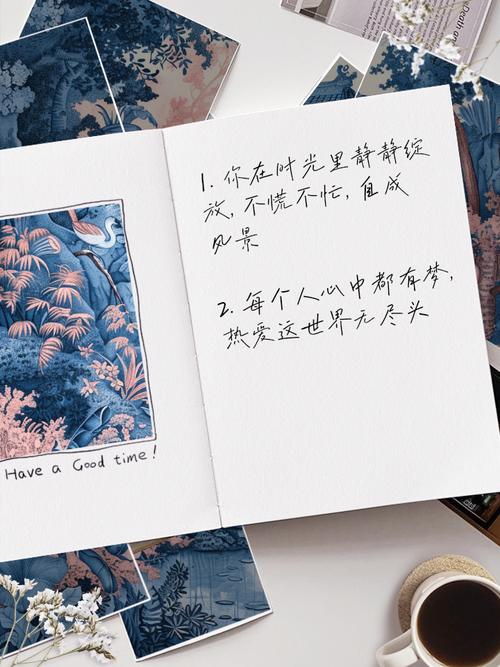 Death an
1. 你在时光里静静绽
放, 不慌不忙, 自成
风景
2. 每个人心中都有梦,
热爱这世界无尽头
Have a Good time!